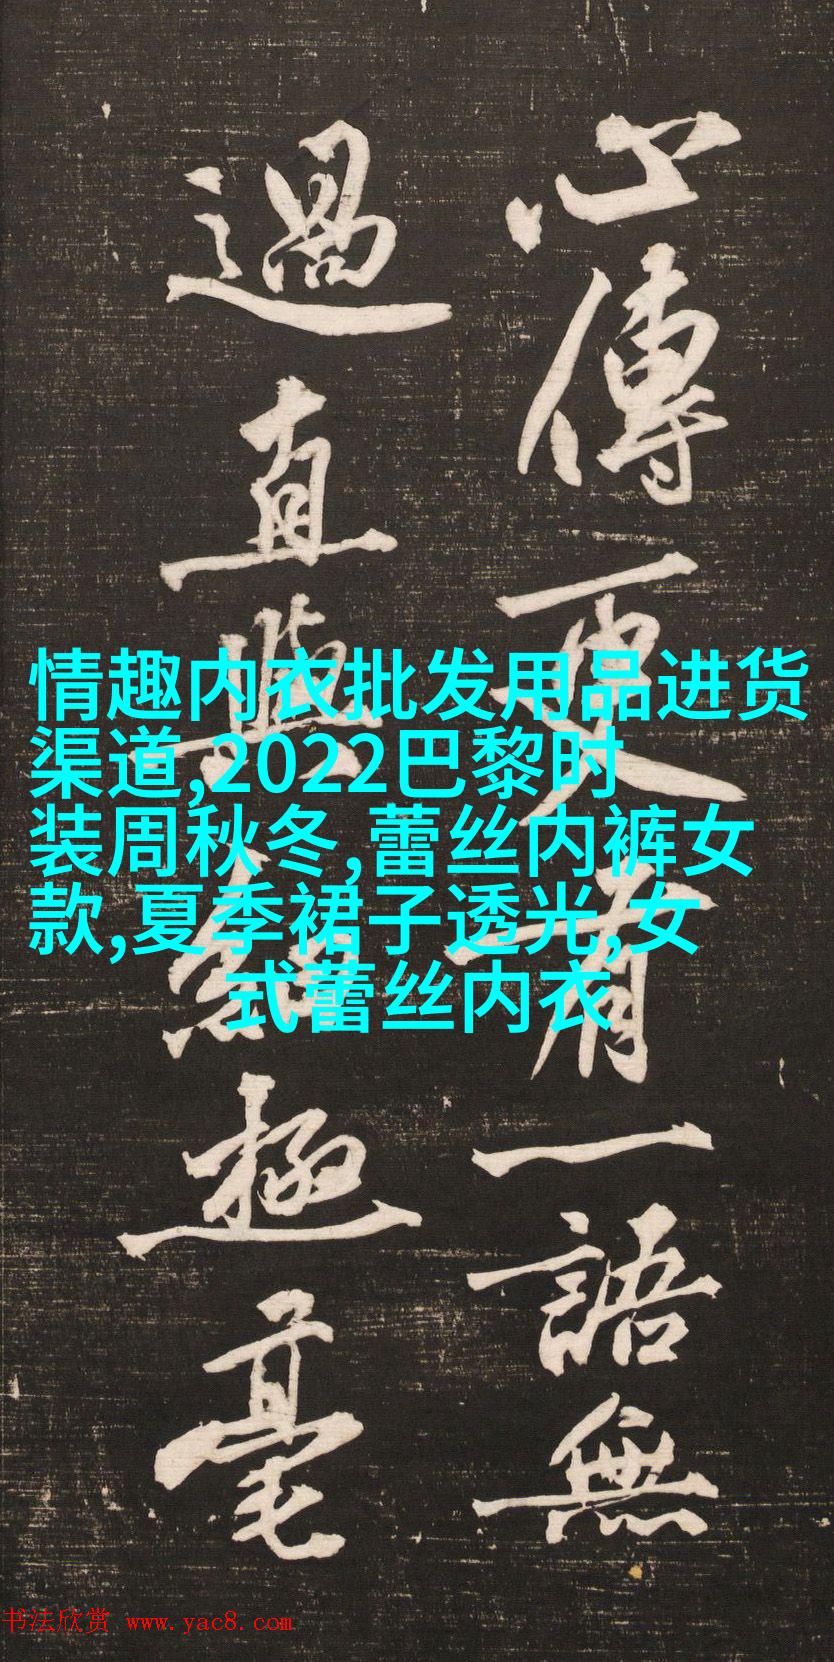 心傳更有一語無
過直與極毫
情趣内衣批发用品进货
渠道,2022巴黎时
装周秋冬,蕾丝内裤女
款,夏季裙子透光,女
式蕾丝内衣
书法欣赏 www.yac8.com